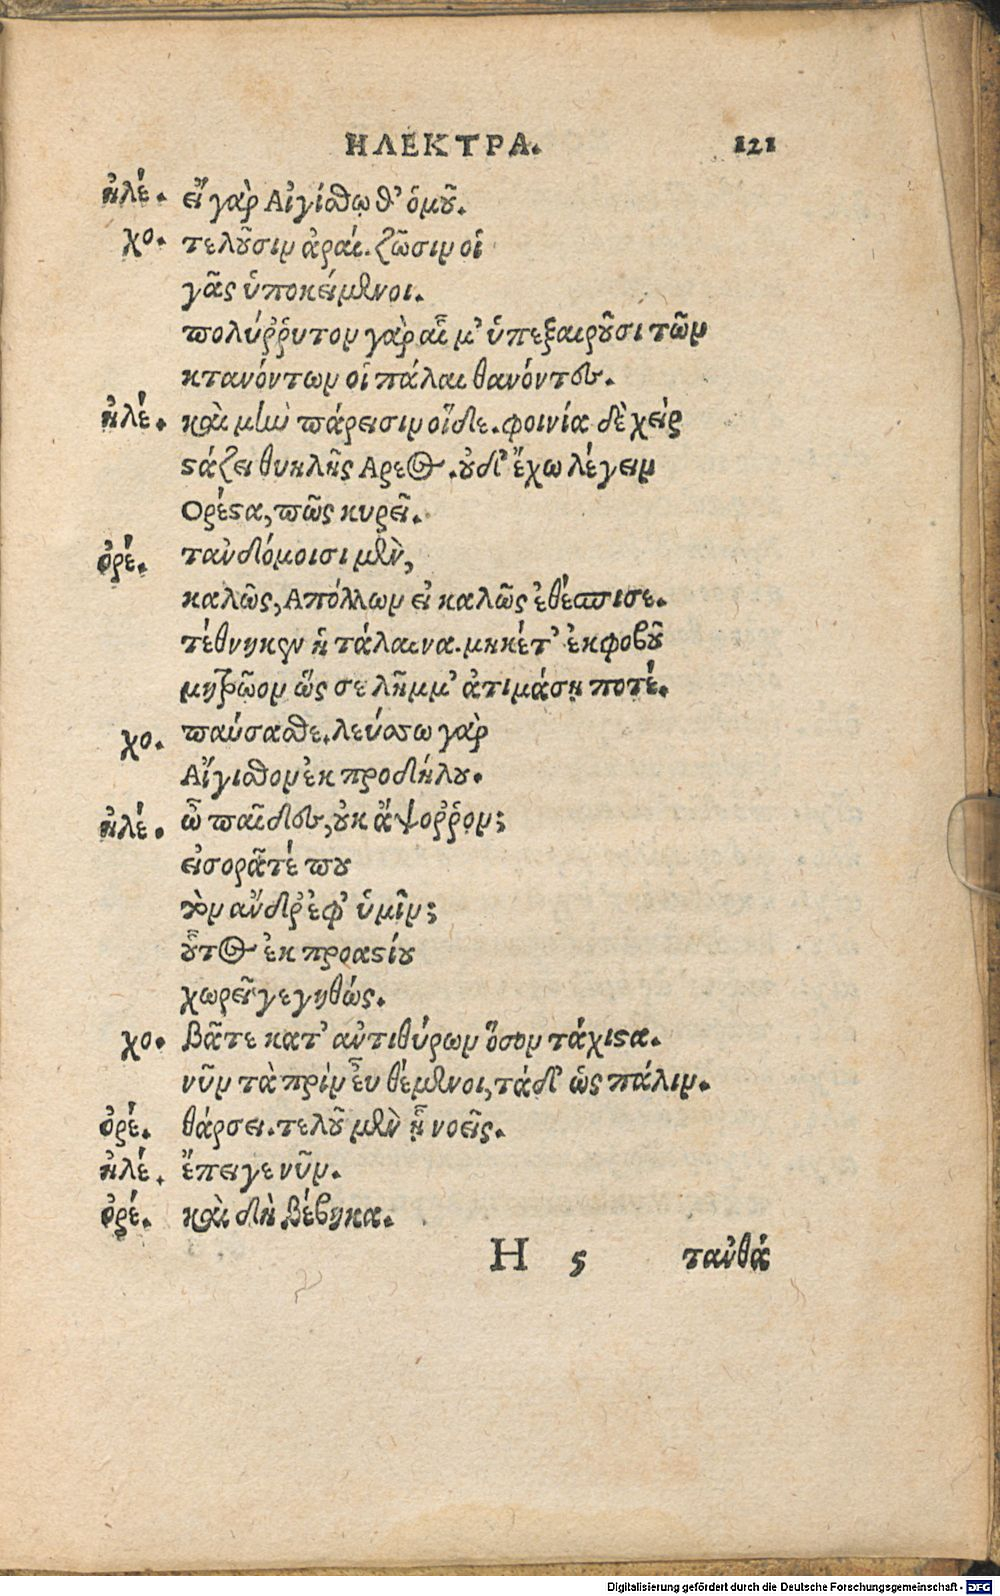 ΗΛΕΚΤΡΑ. 121
ἠλέ. εἴ γὰρ Αἰγίσθῳ θ' ὁμοῦ.
χο. τελοῦσιν ἀραί. ζῶσιν οἱ
γᾶς ὑποκείμενοι.
πολύῤῥυτον γὰρ αἷμ' ὑπεξαιροῦσι τῶν
κτανόντων οἱ πάλαι θανόντες.
ἠλέ. καὶ μὴν πάρεισιν οἵδε. φοινία δὲ χεὶρ
στάζει θυηλῆς Αρεος. οὐδ' ἔχω λέγειν
Ορέστα, πῶς κυρεῖ.
ὀρέ. ταν δόμοισι μὲν,
καλῶς, Απόλλων εἰ καλῶς ἐθέσπισε.
τέθνηκεν ἡ τάλαινα. μηκέτ' ἐκφοβοῦ
μητρῷον ὥς σε λῆμμ' ἀτιμάσῃ ποτέ.
χο. παύσασθε. λεύσσω γὰρ
Αἴγισθον ἐκ προδήλου.
ἠλέ. ὦ παῖδες, οὐκ ἄψοῤῥον;
εἰσορᾶτέ που
τὸν ἄνδρ' ἐφ' ὑμῖν;
οὗτος ἐκ προαστίου
χωρεῖ γεγηθώς.
χο. βᾶτε κατ' ἀντιθύρων ὅσον τάχιστα.
νῦν τὰ πρὶν εὖ θέμενοι, τάδ' ὡς πάλιν.
ὀρέ. θάρσει. τελοῦμεν ᾗ νοεῖς.
ἠλέ. ἔπειγε νῦν.
ὀρέ. καὶ δὴ βέβηκα.
H 5 ταὐθά
Digitalisierung gefördert durch die Deutsche Forschungsgemeinschaft - DFG